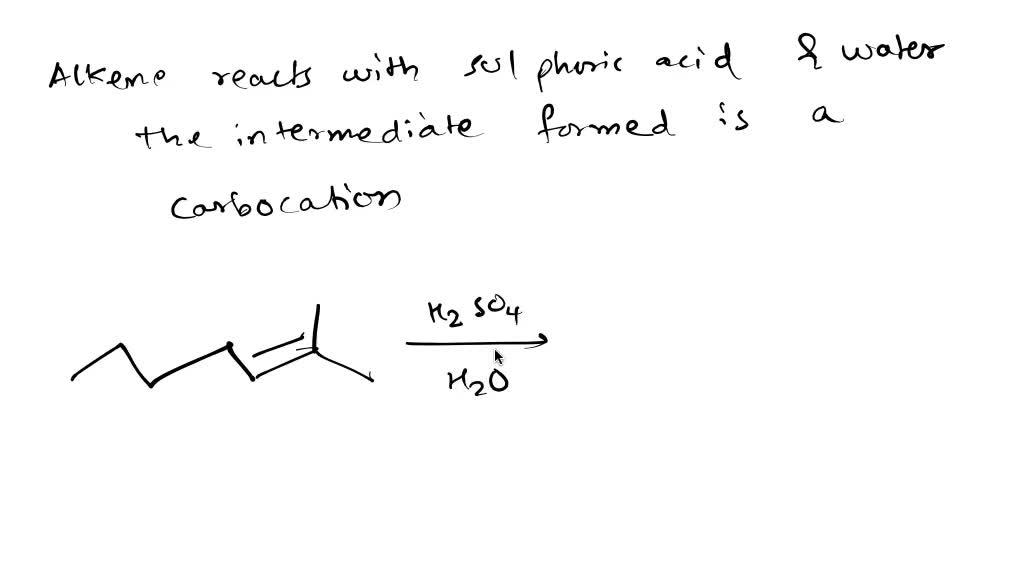 Alkene reacts with sulphoric acid & water
the intermediate formed is a
carbocation
H2 SO4
H2O